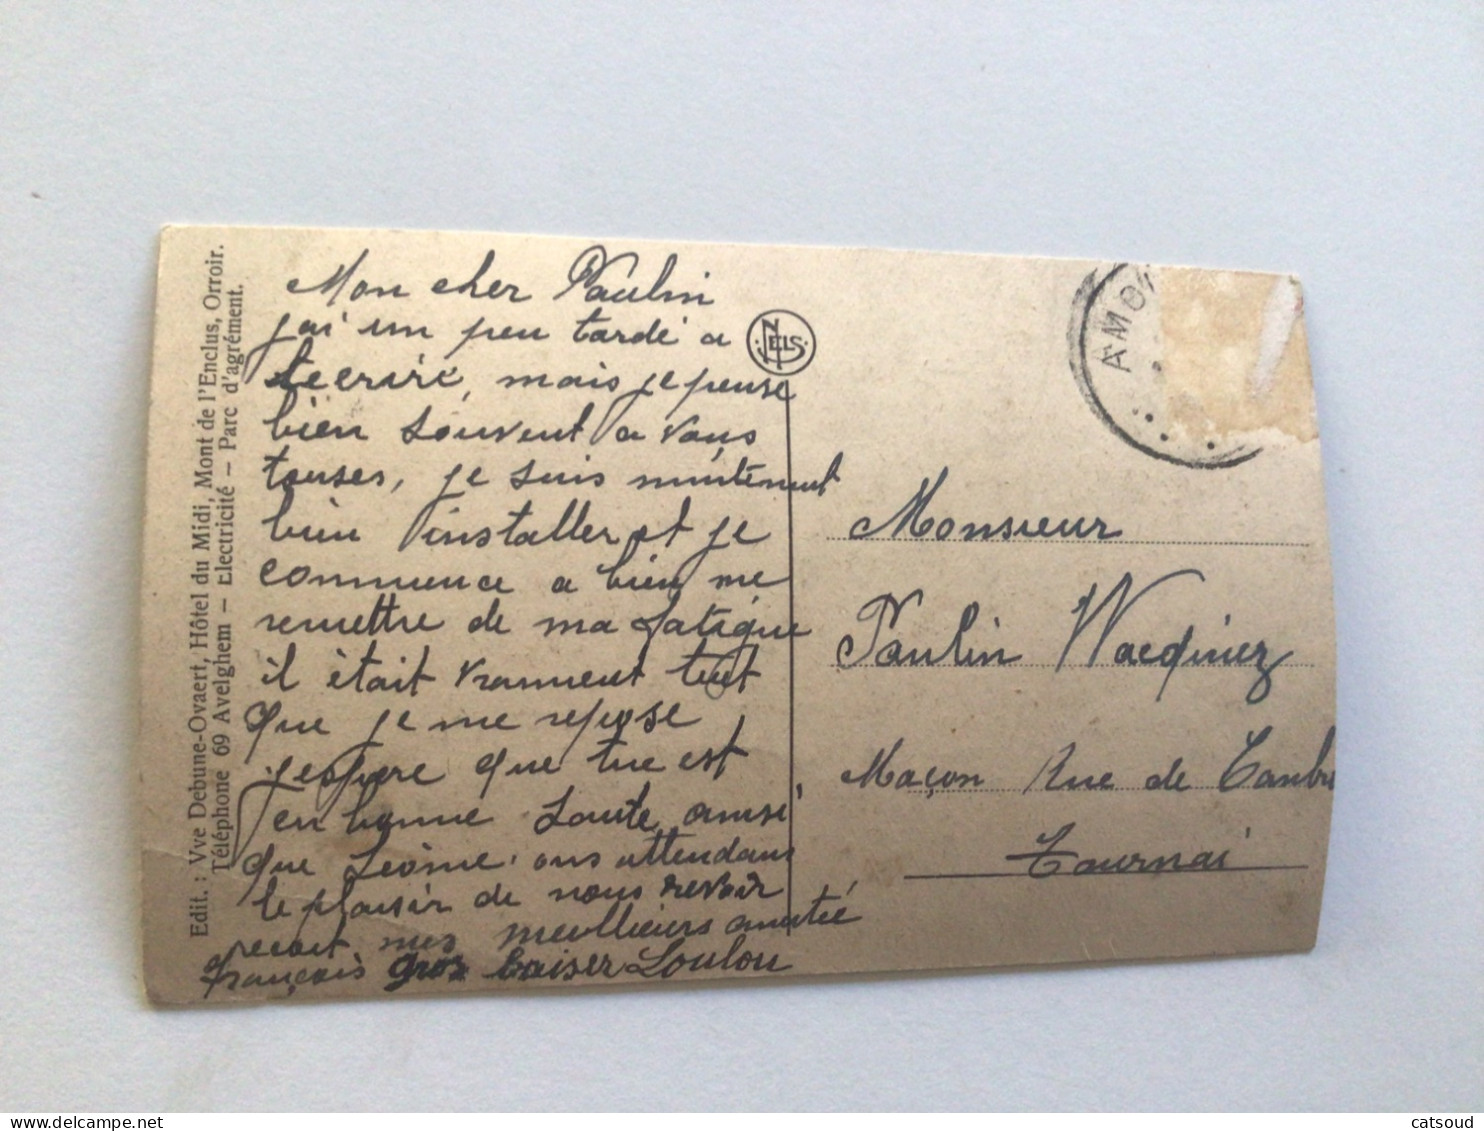 Edit. : Vve Debune-Ovaert, Hôtel du Midi, Mont de l'Enclus, Orroir.
Téléphone 69 Avelghem - Electricité - Parc d'agrément.
Mon cher Paulin
j'ai un peu tardé a
tecrire, mais je pense
bien souvent a vous
touses, je suis maintenent
bien installer et je
commence a bien me
remettre de ma fatigue
il était vraiment
que je me repose
jespere que tue est
en bonne Sante, ausi
que Léonie, ons attendans
le plaisir de nous revoir
recoit mes meullieurs amitié
français gros baiser Loulou
NELS
AMO
Monsieur
Paulin Wacquiez
Maçon Rue de
Tournai
catsoud